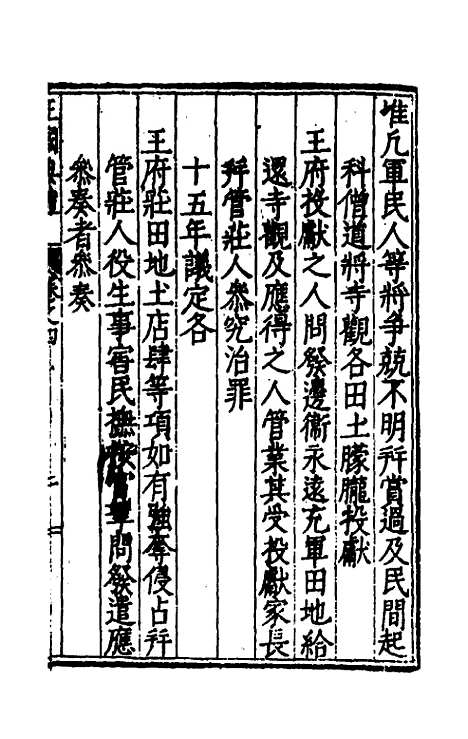 准凡軍民人等將爭競不明并賞過及民間起
科僧道將寺觀各田土朦朧投獻
王府投獻之人問發邊衛永遠充軍田地給
還寺觀及應得之人管業其受投獻家長
并管莊人參究治罪
十五年議定各
王府莊田地土店肆等項如有強奪侵占并
管莊人役生事害民撫按官拏問發遣應
參奏者參奏
王國典禮 卷之四